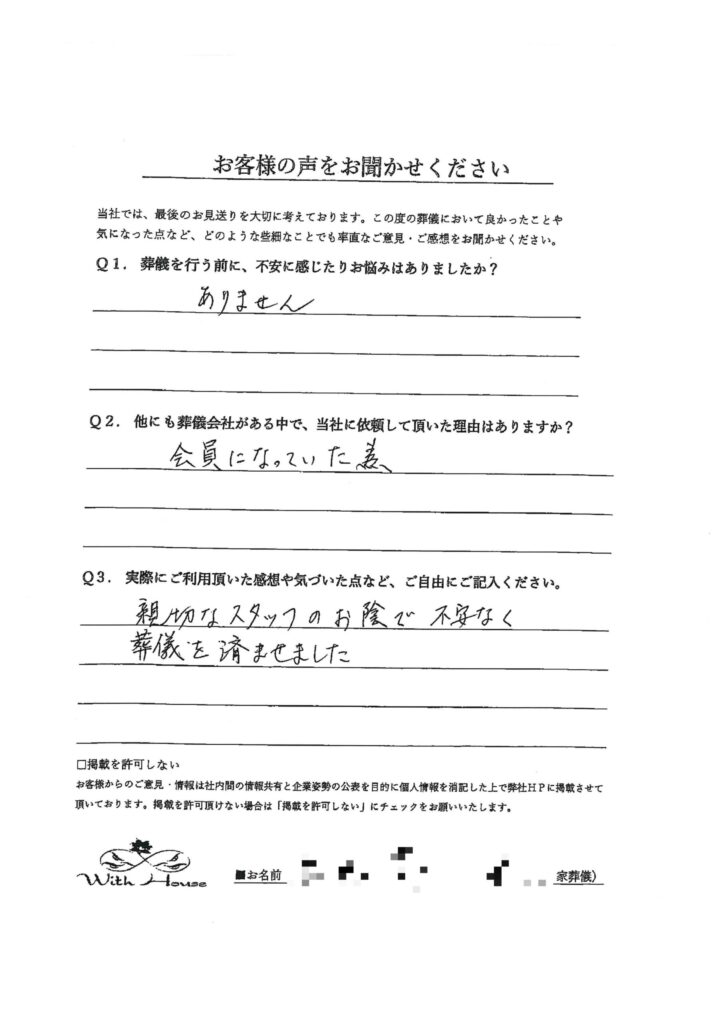 お客様の声をお聞かせください
当社では、最後のお見送りを大切に考えております。この度の葬儀において良かったことや
気になった点など、どのような些細なことでも率直なご意見・ご感想をお聞かせください。
Q1. 葬儀を行う前に、不安に感じたりお悩みはありましたか？
ありません
Q2. 他にも葬儀会社がある中で、当社に依頼して頂いた理由はありますか？
会員になっていた為
Q3. 実際にご利用頂いた感想や気づいた点など、ご自由にご記入ください。
親切なスタッフのお陰で不安なく
葬儀を済ませました
□掲載を許可しない
お客様からのご意見・情報は社内間の情報共有と企業姿勢の公表を目的に個人情報を消記した上で弊社HPに掲載させて
頂いております。掲載を許可頂けない場合は「掲載を許可しない」にチェックをお願いいたします。
With House
■お名前 家葬儀）